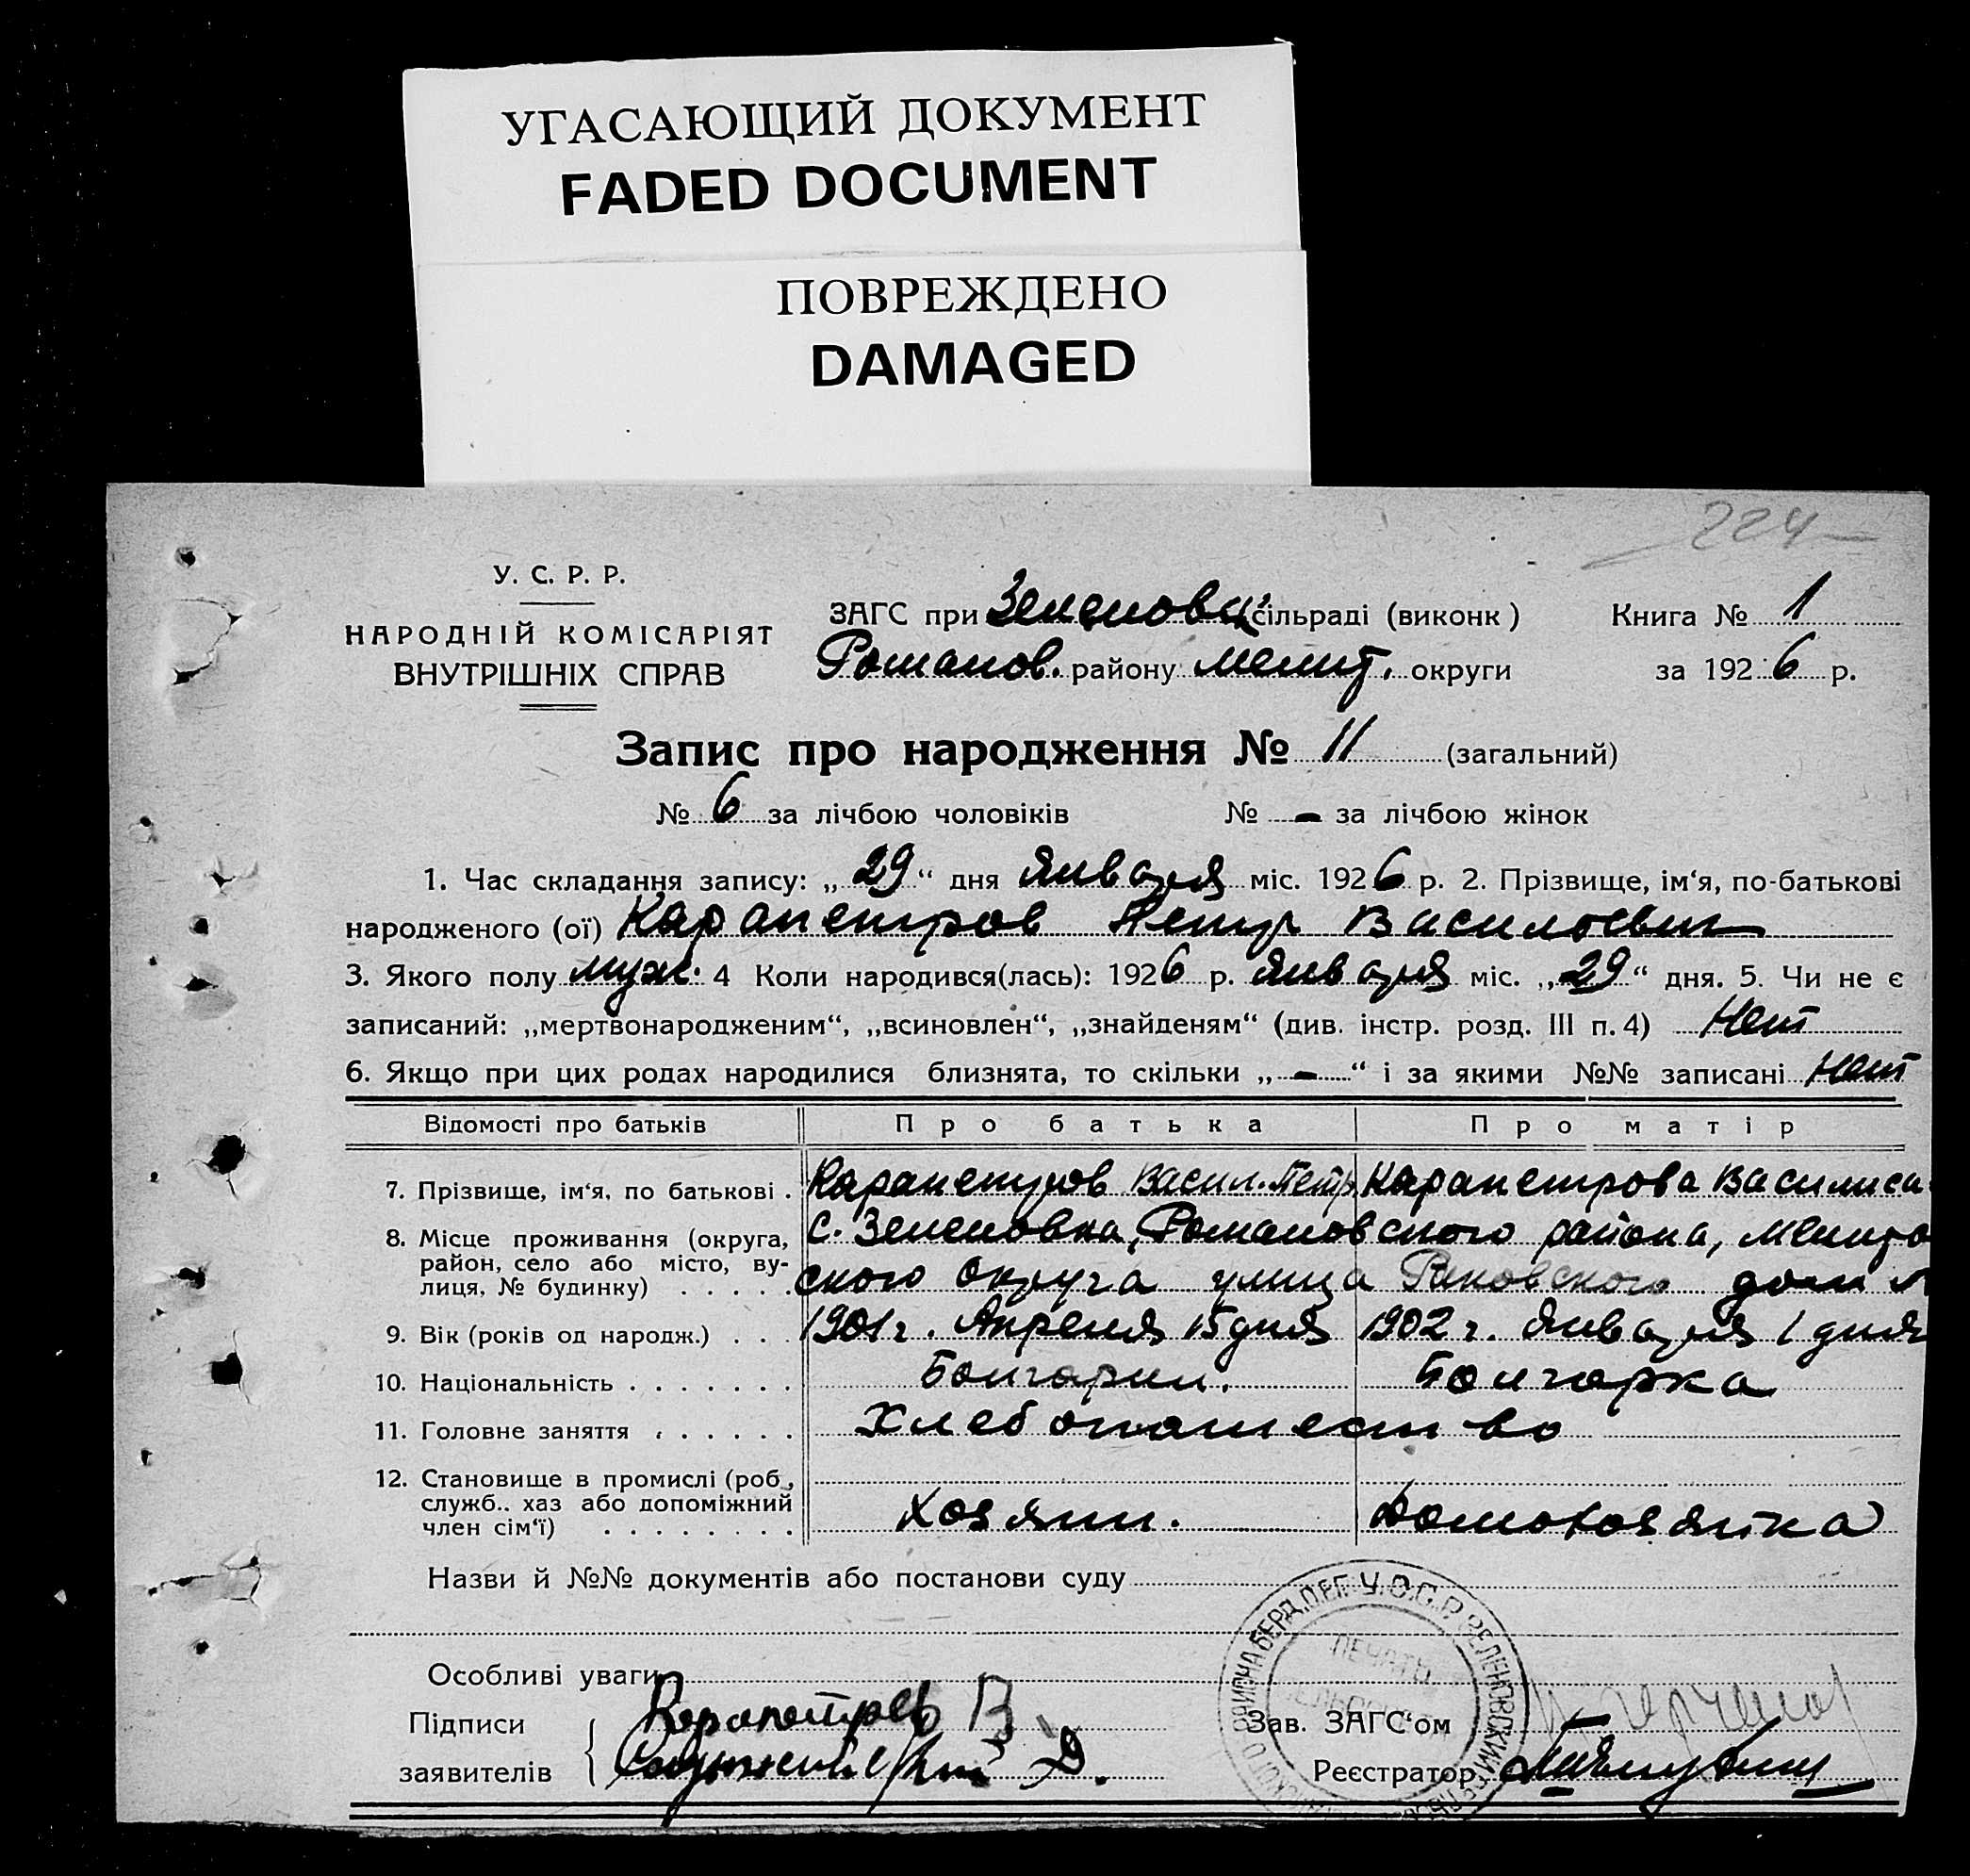 УГАСАЮЩИЙ ДОКУМЕНТ
FADED DOCUMENT
ПОВРЕЖДЕНО
DAMAGED
224
У. С. Р. Р.
НАРОДНІЙ КОМІСАРІЯТ
ВНУТРІШНІХ СПРАВ
ЗАГС при Зеленовц. сільраді (виконк)
Романов. району мелит. округи
Книга № 1
за 1926 р.
Запис про народження № 11 (загальний)
№ 6 за лічбою чоловіків № - за лічбою жінок
1. Час складання запису: „29“ дня января міс. 1926 р. 2. Прізвище, ім‘я, по-батькові
народженого (ої) Карапетров Петр Васильевич
3. Якого полу муж. 4 Коли народився(лась): 1926 р. января міс. „29“ дня. 5. Чи не є
записаний: „мертвонародженим“, „всиновлен“, „знайденям“ (див. інстр. розд. III п. 4) Нет
6. Якщо при цих родах народилися близнята, то скільки „-“ і за якими №№ записані Нет
Відомості про батьків Про батька Про матір
7. Прізвище, ім‘я, по батькові . Карапетров Васил. Петр Карапетрова Василиса
8. Місце проживання (округа, район, село або місто, вулиця, № будинку) . . . . . с. Зеленовка, Романовского района, Мелито
ского округа улица Раковского дом №
9. Вік (років од народж.) . . . 1901 г. Апреля 15 дня 1902 г. января 1 дня
10. Національність . . . . . . . Болгарин. Болгарка
11. Головне заняття . . . . . . Хлебопашество
12. Становище в промислі (роб., служб.. хаз або допоміжний член сім‘ї) . . . . . . . . Хозяин. Домохозяйка
Назви й №№ документів або постанови суду
Особливі уваги
Підписи заявителів
Карапетров В
Д.
Зав. ЗАГС‘ом
Реєстратор
У.С.С.Р. ЗЕЛЕНОВСКИЙ
РАЙОНА БЕРД.
ПЕЧАТЬ